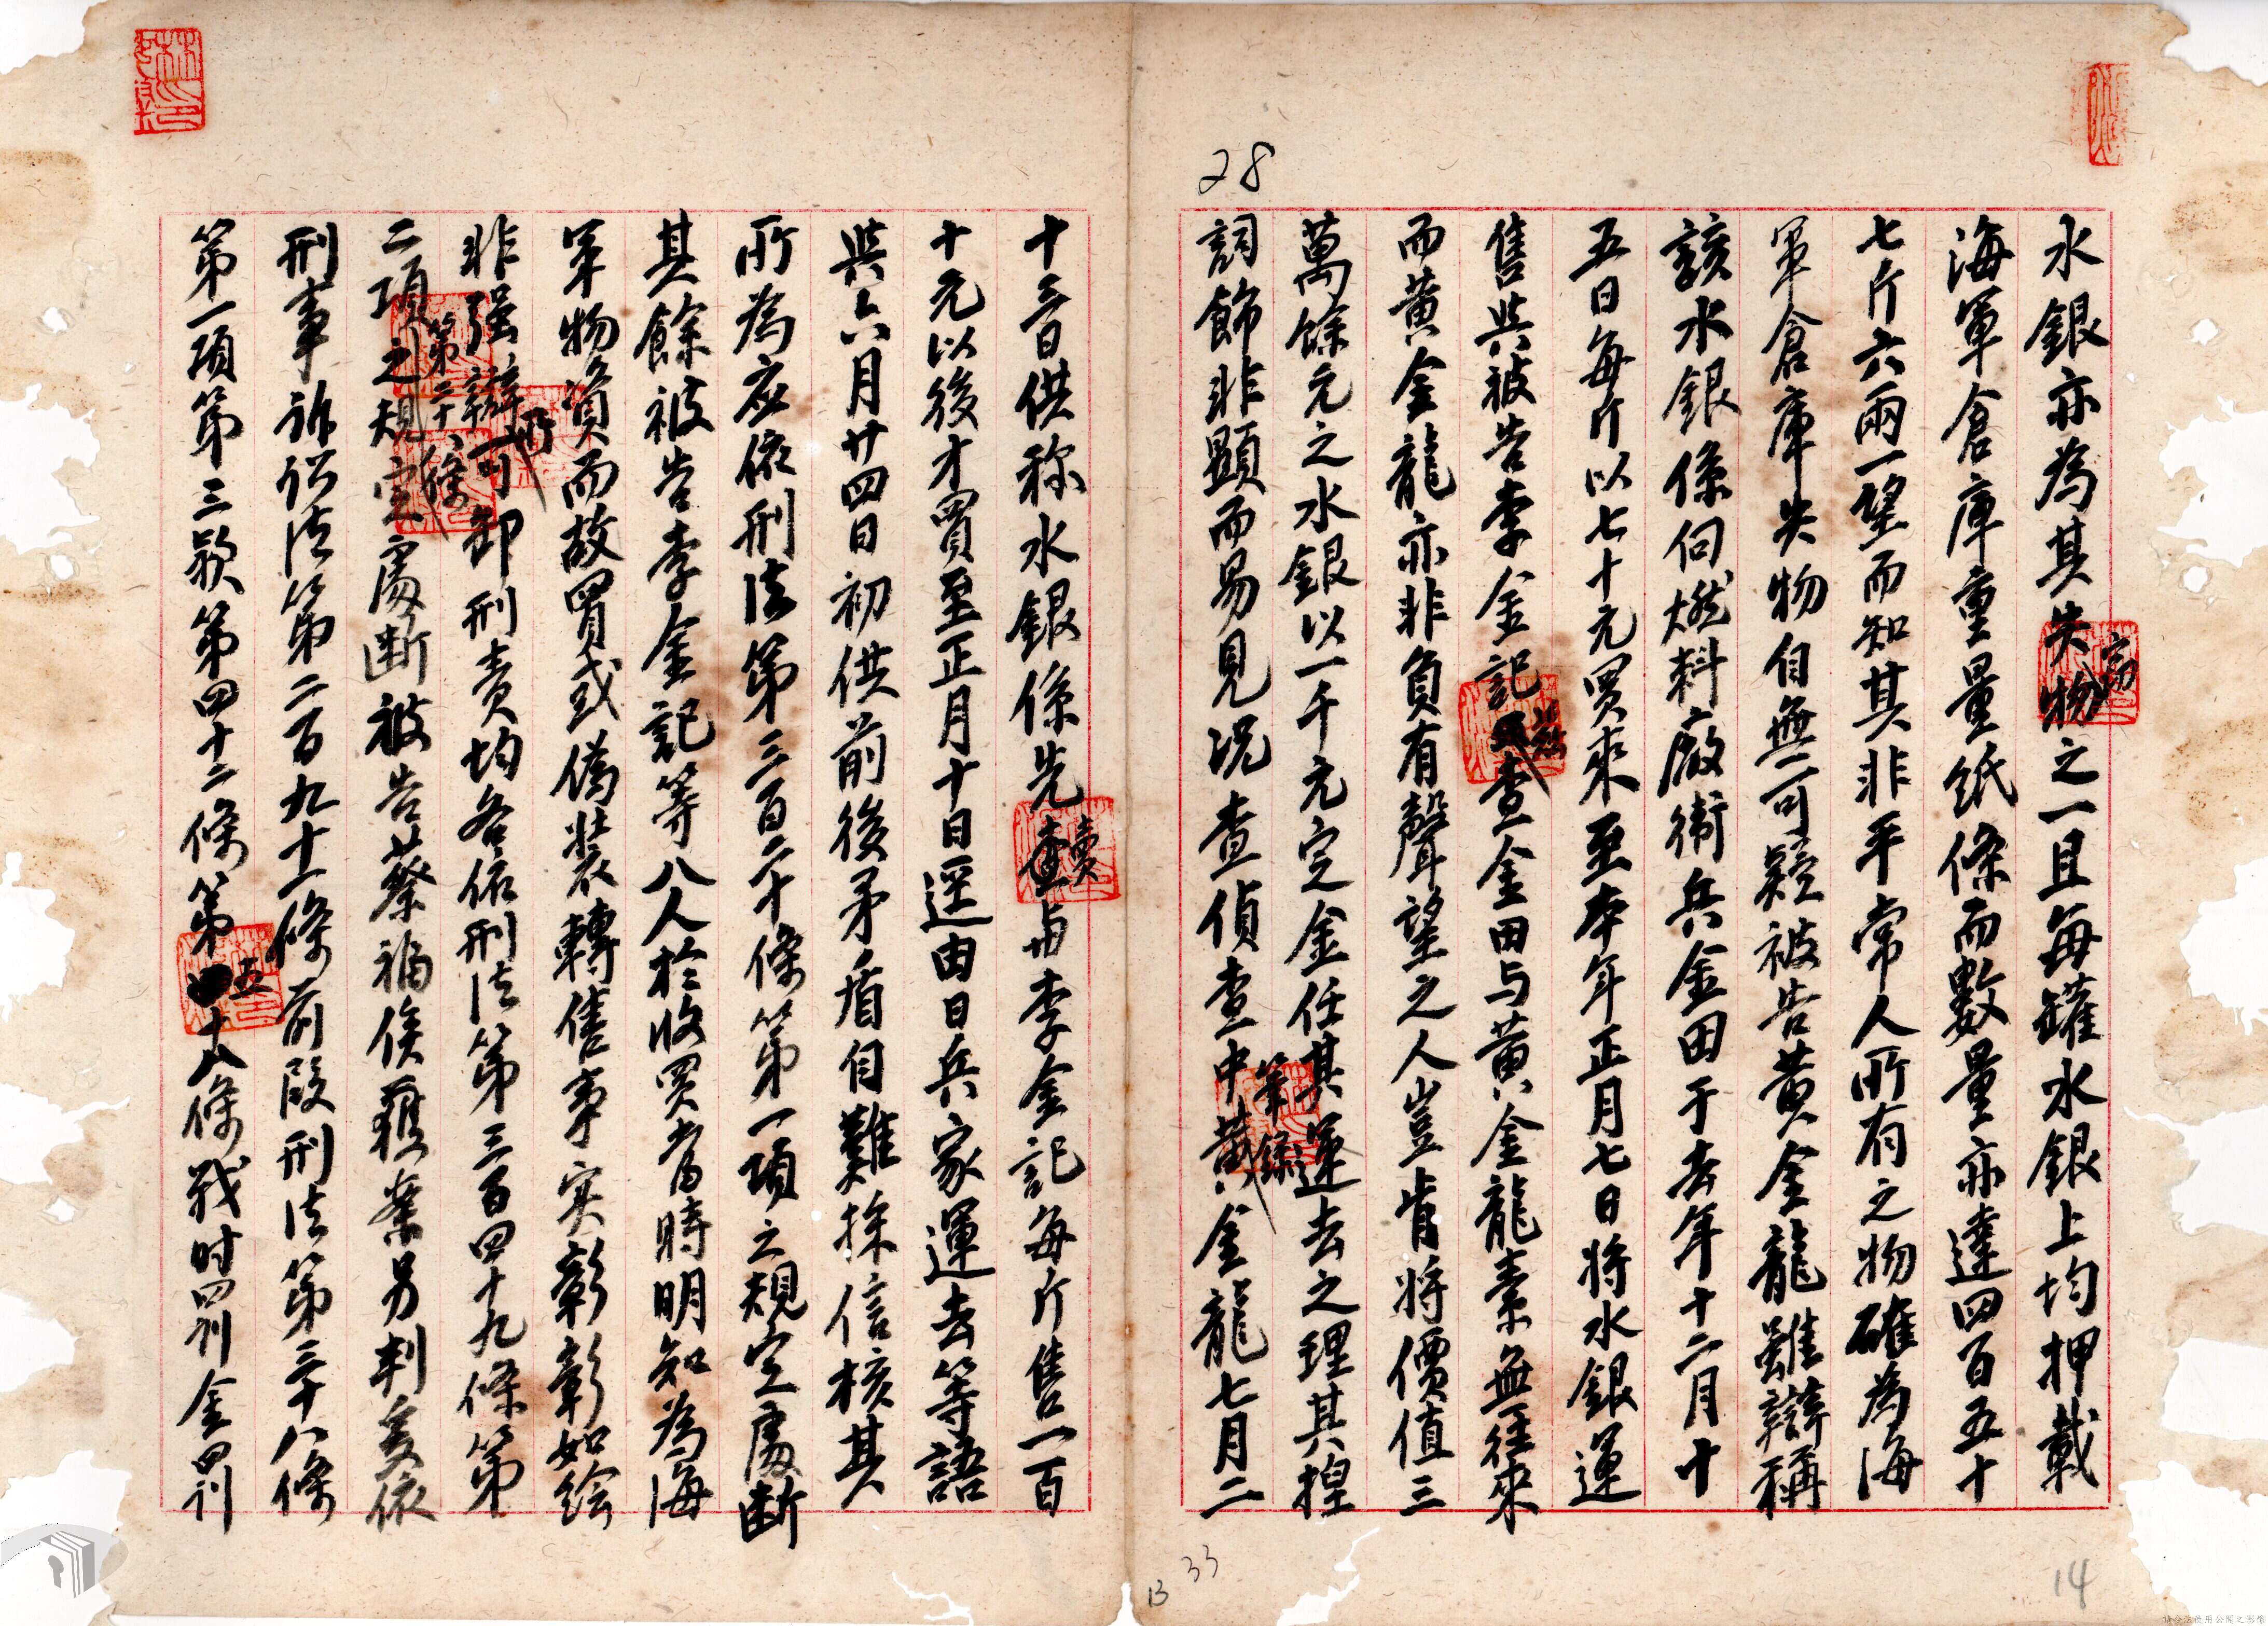 28
水銀亦為其失物之一且每罐水銀上均押載
海軍倉庫重量紙條而數量亦達四百五十
七斤六兩一望而知其非平常人所有之物確為海
軍倉庫失物自無可疑被告黃金龍雖辯稱
該水銀係向燃料廠衛兵金田于去年十二月十
五日每斤以七十元買來至本年正月七日將水銀運
售與被告李金記然查金田与黃金龍素無往來
而黃金龍亦非負有聲望之人豈肯將價值三
萬餘元之水銀以一千元定金任其運去之理其捏
詞飾非顯而易見況查偵查筆錄中黃金龍七月二
十三日供称水銀係先賣與李金記每斤售一百
十元以後才買至正月十日逕由日兵家運去等語
與六月廿四日初供前後矛盾自難採信核其
所為应依刑法第三百二十條第一項之規定處断
其餘被告李金記等八人於收買當時明知為海
軍物資而故買或偽裝轉售事实彰彰如绘
非强辯所可卸刑責均各依刑法第三百四十九條第
二項第二十八條之規定處断被告蔡福侯蘓案另判爰依
刑事訴訟法第二百九十一條前段刑法第三十八條
第一項第三款第四十二條第五十八條战时罰金罰
33
13
14